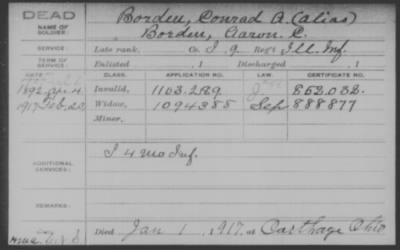 DEAD
NAME OF SOLDIER: Borden, Conrad A. (alias)
Borden, Aaron C.
SERVICE: Late rank, Co. I, 9 Reg't Ill. Inf.
TERM OF SERVICE: Enlisted , 1 Discharged , 1
DATE CLASS. APPLICATION NO. LAW. CERTIFICATE NO.
1892 Invalid, 1103.289 853.032.
1917 Feb. 20 Widow, 1094388 Sep 888877
Minor,
ADDITIONAL SERVICES: I 4 Mo Inf.
REMARKS:
Died Jan 1, 1917, at Carthage Ohio